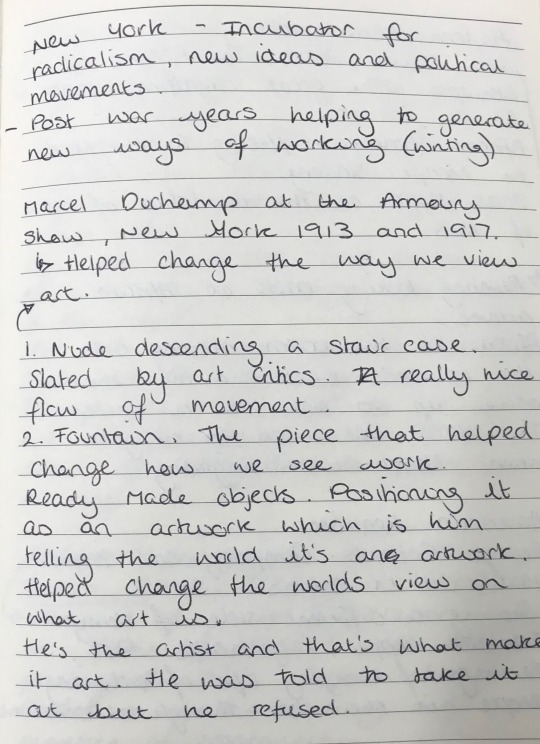 New York - Incubator for
radicalism, new ideas and political
movements.
- Post war years helping to generate
new ways of working (writing)
Marcel Duchamp at the Armoury
Show, New York 1913 and 1917.
↳ Helped change the way we view
art.
1. Nude descending a stair case.
Slated by art critics. A really nice
flow of movement.
2. Fountain. The piece that helped
change how we see work.
Ready Made objects. Positioning it
as an artwork which is him
telling the world it's an artwork.
Helped change the worlds view on
what art is.
He's the artist and that's what make
it art. He was told to take it
out but he refused.